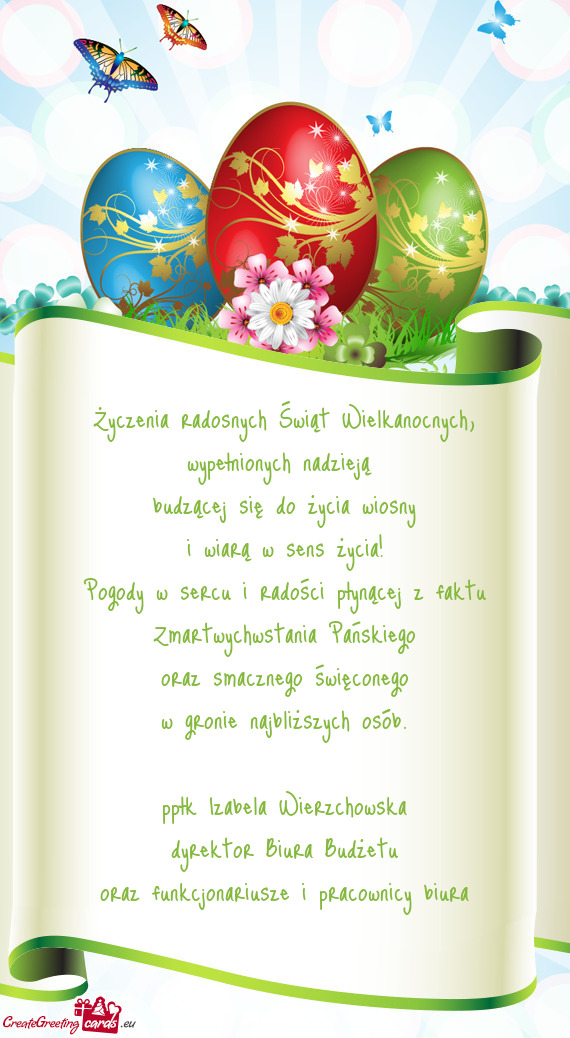 Życzenia radosnych Świąt Wielkanocnych,
wypełnionych nadzieją
budzącej się do życia wiosny
i wiarą w sens życia!
Pogody w sercu i radości płynącej z faktu
Zmartwychwstania Pańskiego
oraz smacznego święconego
w gronie najbliższych osób.
ppłk Izabela Wierzchowska
dyrektor Biura Budżetu
oraz funkcjonariusze i pracownicy biura
CreateGreeting cards .eu